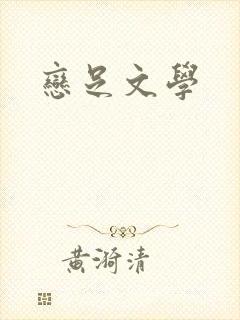 戀足文學
黃漪清